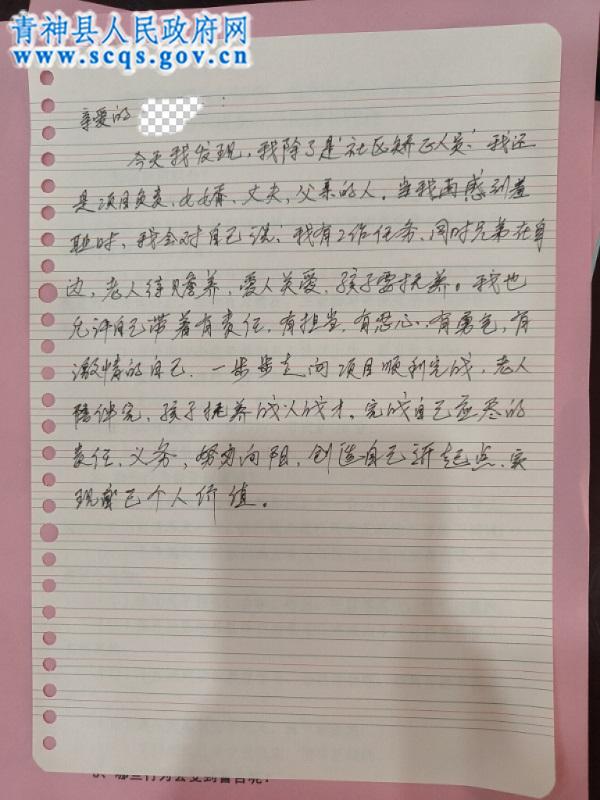 青神县人民政府网
www.scqs.gov.cn
亲爱的 :
今天我发现,我除了是"社区矫正人员",我还
是项目负责、女婿、丈夫、父亲的人。当我再感到羞
耻时,我会对自己说:我有工作任务、同时兄弟在身
边,老人待赡养,爱人关爱,孩子要抚养。我也
允许自己带着有责任,有担当,有忍心,有勇气,有
激情的自己,一步步走向项目顺利完成,老人
陪伴完,孩子抚养成人成才,完成自己应尽的
责任、义务,努力向阳,创造自己新起点,实
现自己个人价值。